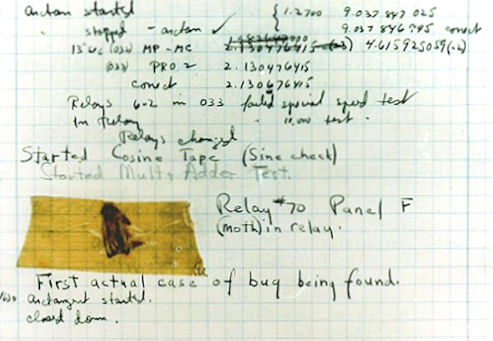 arctan started { 1.2700 9.037 847 025
" stopped - arctan ✓ 9.037 846 995 correct
13"uc (032) MP-MC 2.130476415 (-3) 4.615925059(-2)
(033) PRO 2 2.130476415
correct 2.130676415
Relays 6-2 in 033 failed special speed test
in relay " 10,000 test.
Relays changed
Started Cosine Tape (Sine check)
Started Mult + Adder Test.
Relay #70 Panel F
(moth) in relay.
First actual case of bug being found.
arctangent started.
closed down.